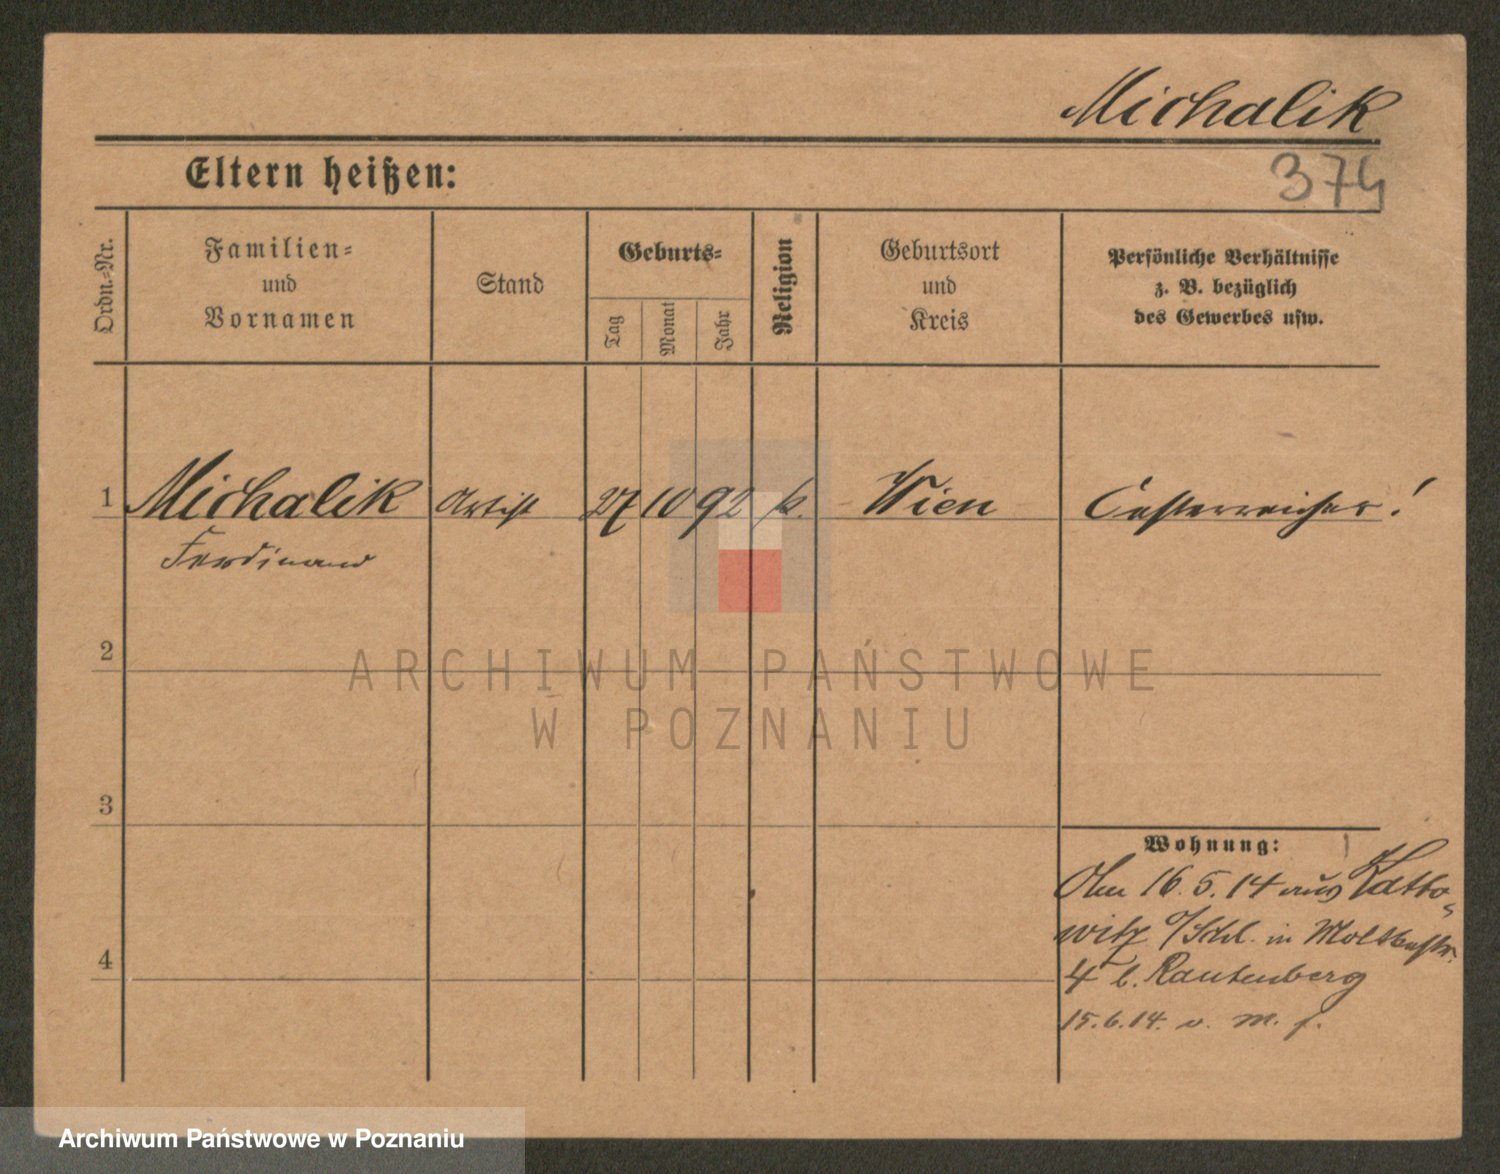 Michalik
374
Eltern heißen:
Ordn.-Nr.
Familien-
und
Vornamen
Stand
Geburts-
Tag
Monat
Jahr
Religion
Geburtsort
und
Kreis
Persönliche Verhältnisse
z. B. bezüglich
des Gewerbes usw.
1 Michalik Artist 27 10 92 k. Wien Oesterreicher!
Ferdinand
2
ARCHIWUM PAŃSTWOWE
W POZNANIU
3
Wohnung:
16.5.14 aus Katto-
witz O/Schl. in Moltkestr.
4
4 b. Rautenberg
15.6.14. v. m. f.
Archiwum Państwowe w Poznaniu